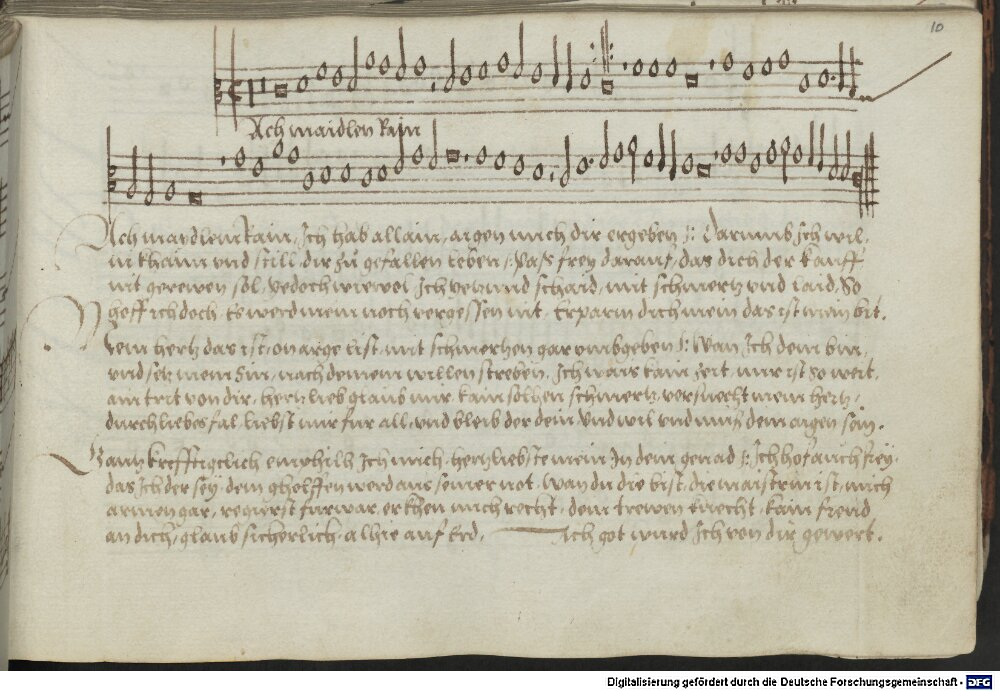 10
Ach maidlen Rain
Ach maydlein Rain, Ich hab allain, aigen mich dir ergeben :/: Darumb Ich wil,
in khaim und still, dir zu gefallen leben :/: Pass frey darauf, das dich der kauff
nit gerewen sol, yedoch wiewol Ich yetzund schaid, mit schmertz und laid, So
hoff ich doch, Es werd mein noch vergessen nit, Erparm dich mein das ist main bit.
Mein hertz das ist, on arge list, mit schmertzen gar umbgeben :/: Wan Ich dein bin,
und setz mein Sin, nach deinem willen streben, Ich wais kain Zeit, mir ist so weit,
ain trit von dir, hertzlieb glaub mir, kain solhen schmertz, versuecht mein hertz,
durch liebes fal, liebst mir fur all, und bleib der dein, und wil und mus dein aigen sein.
Gantz krefftigclich emphilh Ich mich, hertzliebste mein In dein genad :/: Ich hof auch frey,
das Ich der sey, dem gholffen werd aus seiner not, wan du die bist, die maistrin ist, mich
armen gar, regierst furwar, erkhen mich recht, dein trewen knecht, kain freud
an dich, glaub sicherlich, alhie auf Erd, Ach got wurd Ich von dir gewert.
Digitalisierung gefördert durch die Deutsche Forschungsgemeinschaft - DFG